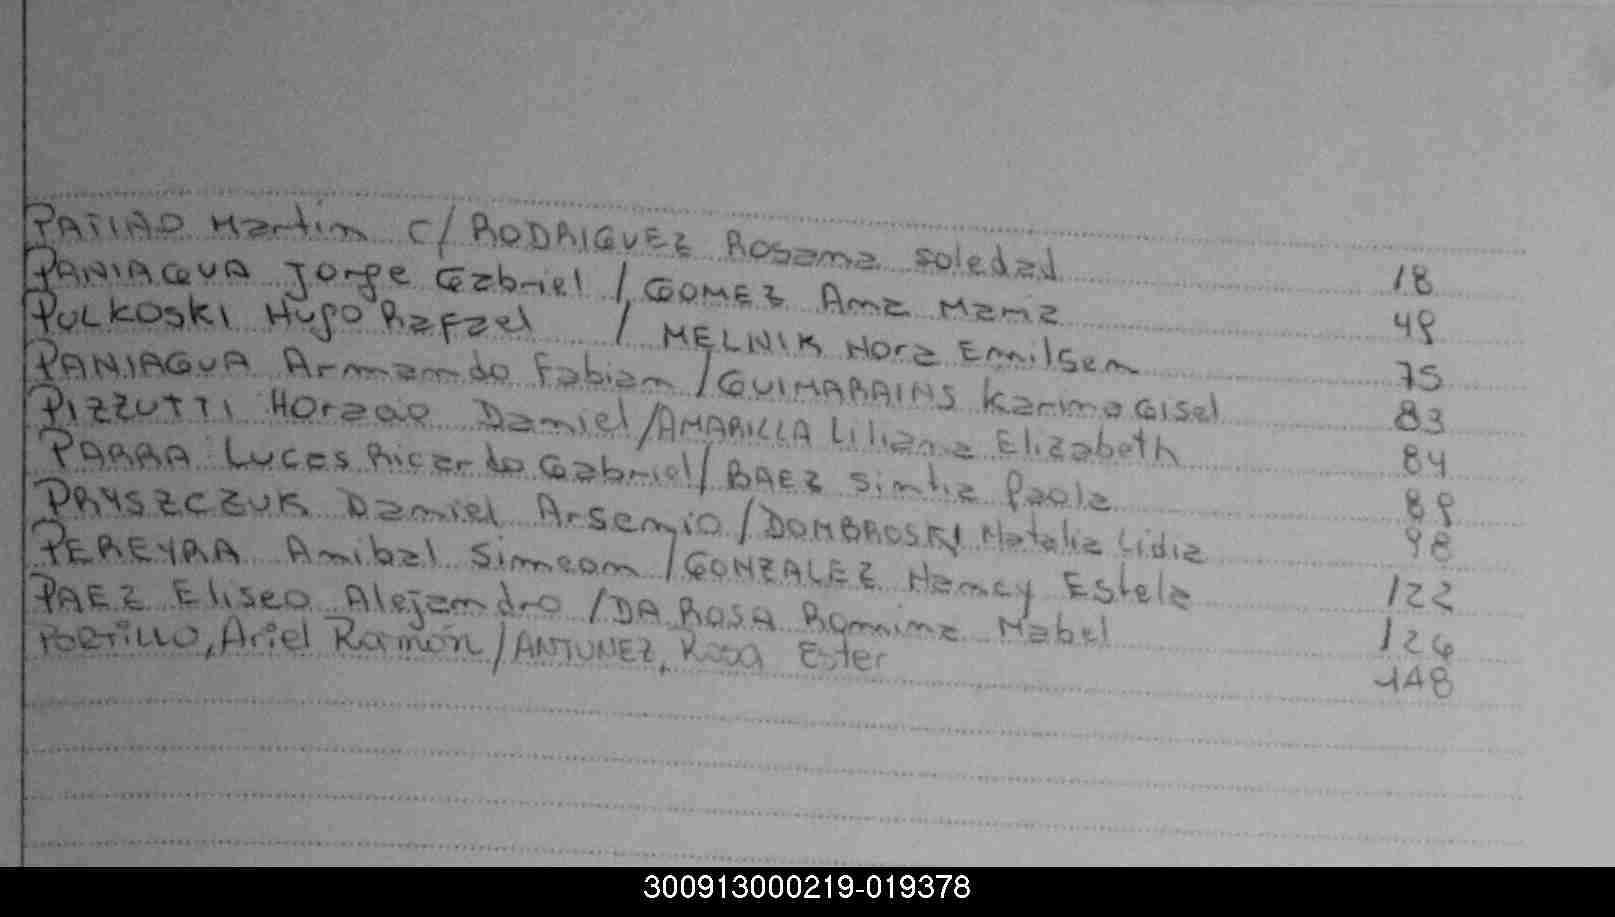 PATIÑO Martin c/ RODRIGUEZ Rosana soledad 18
PANIAGUA Jorge Gabriel / GOMEZ Ana Maria 49
PULKOSKI Hugo Rafael / MELNIK Nora Emilsen 75
PANIAGUA Armando Fabian / GUIMARAINS Karina Gisel 83
PIZZUTTI Horacio Daniel / AMARILLA Liliana Elizabeth 84
PARRA Lucas Ricardo Gabriel / BAEZ Sintia Paola 89
PRYSZCZUK Daniel Arsenio / DOMBROSKI Natalia Lidia 98
PEREYRA Anibal Simeon / GONZALEZ Nancy Estela 122
PAEZ Eliseo Alejandro / DA ROSA Romina Mabel 126
PORTILLO, Ariel Ramón / ANTUNEZ, Rosa Ester 148
300913000219-019378